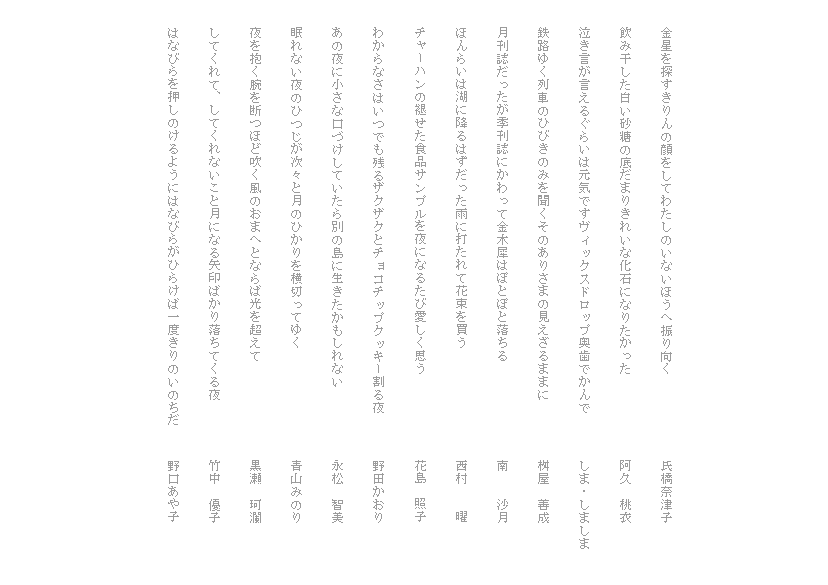 金星を探すきりんの顔をしてわたしのいないほうへ振り向く　氏橋奈津子
飲み干した白い砂糖の底だまりきれいな化石になりたかった　阿久　桃衣
泣き言が言えるぐらいは元気ですヴィックスドロップ奥歯でかんで　しま・しましま
鉄路ゆく列車のひびきのみを聞くそのありさまの見えざるままに　桝屋　善成
月刊誌だったが季刊誌にかわって金木犀はぽとぽと落ちる　南　沙月
ほんらいは湖に降るはずだった雨に打たれて花束を買う　西村　曜
チャーハンの褪せた食品サンプルを夜になるたび愛しく思う　花島　照子
わからなさはいつでも残るザクザクとチョコチップクッキー割る夜　野田かおり
あの夜に小さな口づけしていたら別の島に生きたかもしれない　永松　智美
眠れない夜のひつじが次々と月のひかりを横切ってゆく　青山みのり
夜を抱く腕を断つほど吹く風のおまへとならば光を超えて　黒瀬　珂瀾
してくれて、してくれないこと月になる矢印ばかり落ちてくる夜　竹中　優子
はなびらを押しのけるようにはなびらがひらけば一度きりのいのちだ　野口あや子